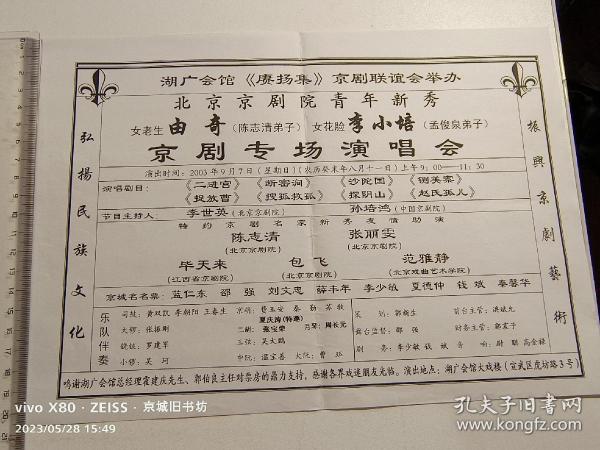 湖广会馆《赓扬集》京剧联谊会举办
北京京剧院青年新秀
女老生 由奇 (陈志清弟子) 女花脸 李小培 (孟俊泉弟子)
京剧专场演唱会
弘揚民族文化
振興京劇藝術
演出时间：2003年9月7日(星期日)(农历癸未年八月十一日)上午9：00——11：30
演唱剧目：《二进宫》《断密涧》《沙陀国》《铡美案》
《捉放曹》《搜孤救孤》《探阴山》《赵氏孤儿》
节目主持人：李世英(北京京剧院) 孙培鸿(中国京剧院)
特约京剧名家新秀友情助演
陈志清 张丽雯
(北京京剧院) (北京京剧院)
毕天来 包飞 范雅静
(江西省京剧院) (北京京剧院) (北京戏曲艺术学院)
京城名名票：蓝仁东 邵强 刘文忠 薛丰年 李少敏 夏德仲 钱斌 秦馨华
乐队伴奏
司鼓：黄双凯 李朝阳 王春生 京胡：费玉安 秦勤 苏牧
夏庆涛(特邀)
大锣：张振刚 二胡：张宝荣 月琴：周长元
铙钹：罗建军 三弦：吴大鹏
小锣：吴河 中阮：温宝善 大阮：曹
策划：郭 前台主管：洪斌元
舞台监督：邵强 财务主管：郭宝于
剧务：李少敏 钱斌 音响：尉聪 高金禄
鸣谢湖广会馆总经理霍建庆先生、郭伯良主任对票房的鼎力支持，感谢各界戏迷朋友光临。演出地点：湖广会馆大戏楼(宣武区虎坊路3号)
vivo X80 · ZEISS · 京城旧书坊
2023/05/28 15:49
孔夫子旧书网
www.kongfz.com